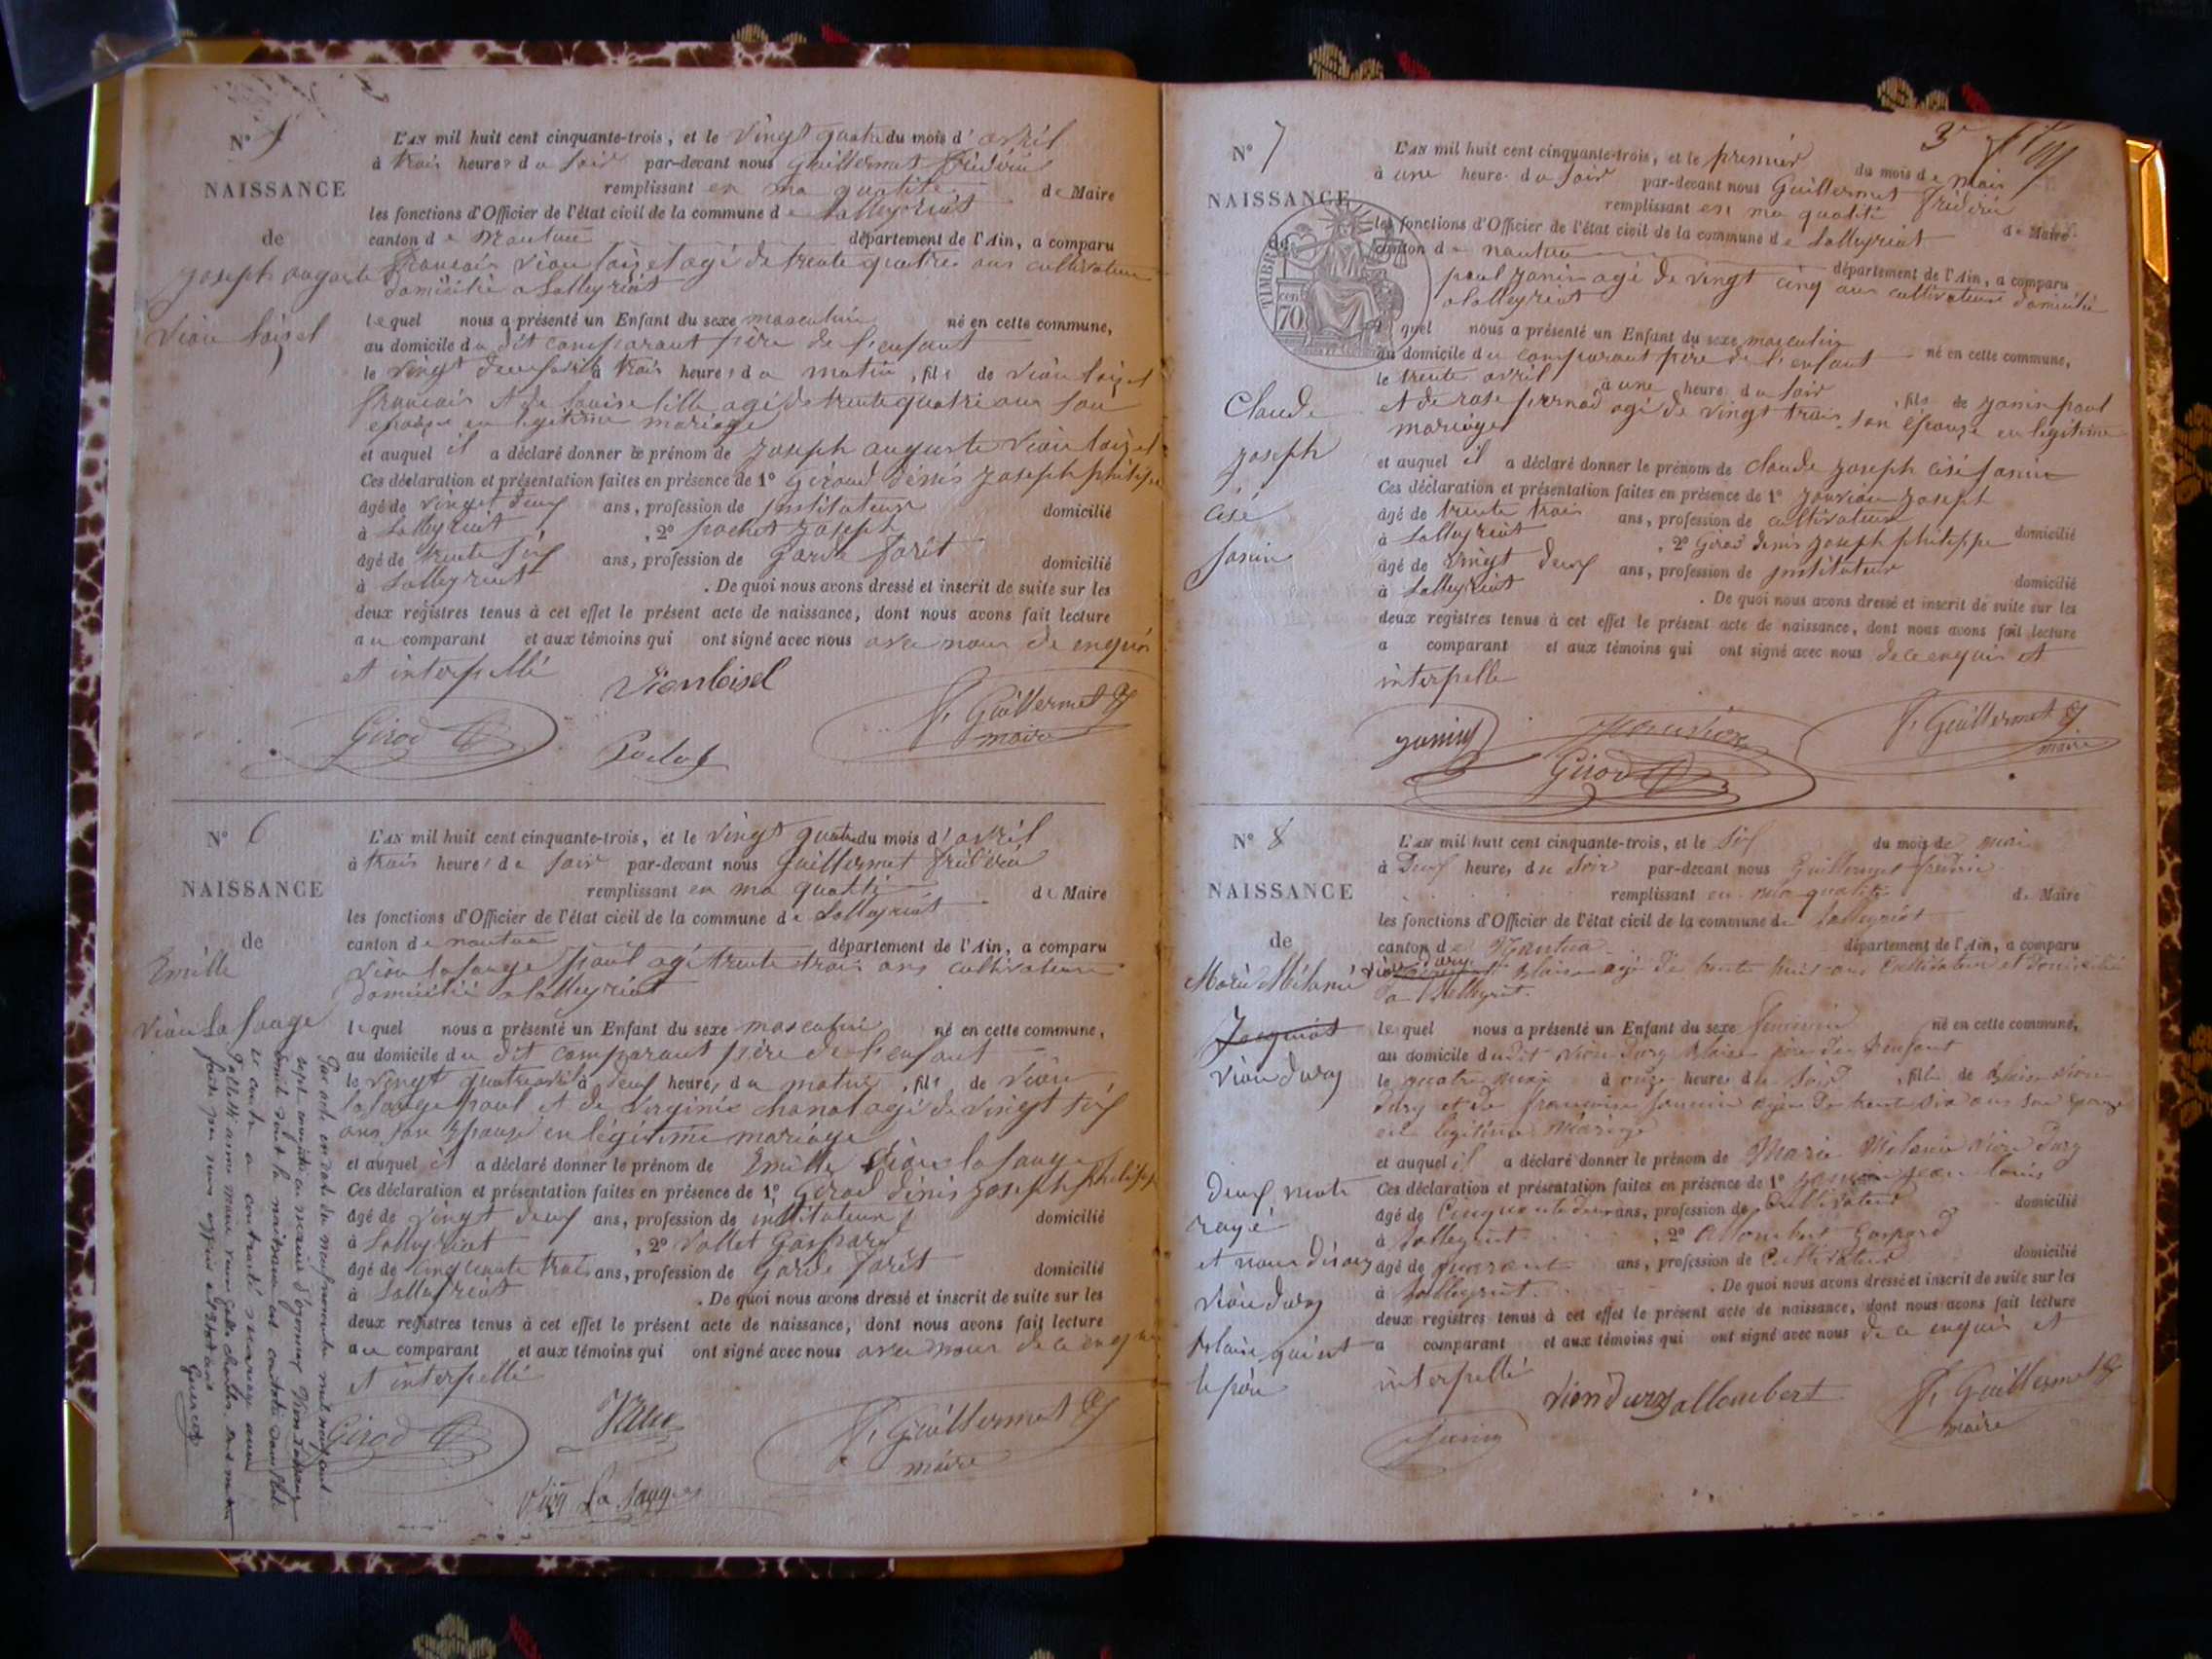 N° 5
NAISSANCE
de
joseph auguste
Vion loisel
L'AN mil huit cent cinquante-trois, et le vingt quatre du mois d'avril
à trois heures du soir par-devant nous Guillermet frédéric
remplissant en ma qualité de Maire
les fonctions d'Officier de l'état civil de la commune de Lalleyriat
canton de Nantua département de l'Ain, a comparu
françois Vion loisel agé de trente quatre ans cultivateur
domicilié a Lalleyriat
lequel nous a présenté un Enfant du sexe masculin né en cette commune,
au domicile du dit comparant père de l'enfant
le vingt deux avril à trois heures du matin, fils de Vion loisel
françois et de louise agé de trente quatre ans son
epouse en legitime mariage
et auquel il a déclaré donner le prénom de joseph auguste Vion loisel
Ces déclaration et présentation faites en présence de 1° Giroud dénis joseph philippe
âgé de vingt deux ans, profession de instituteur domicilié
à Lalleyriat, 2° pochet joseph
âgé de trente six ans, profession de garde forêt domicilié
à Lalleyriat. De quoi nous avons dressé et inscrit de suite sur les
deux registres tenus à cet effet le présent acte de naissance, dont nous avons fait lecture
au comparant et aux témoins qui ont signé avec nous avec nous de enquis
et interpellé
Vionloisel
Girod
F. Guillermet
maire
N° 6
NAISSANCE
de
Emille
Vion La fauge
L'AN mil huit cent cinquante-trois, et le vingt quatre du mois d'avril
à trois heures de soir par-devant nous Guillermet frédéric
remplissant en ma qualité de Maire
les fonctions d'Officier de l'état civil de la commune de Lalleyriat
canton de nantua département de l'Ain, a comparu
Vion lafauge paul agé trente trois ans cultivateur
domicilié a lalleyriat
lequel nous a présenté un Enfant du sexe masculin né en cette commune,
au domicile du dit comparant père de l'enfant
le vingt quatre avril à deux heures du matin, fils de Vion
lafauge paul et de Virginie chanal agé de vingt six
ans son epouse en légitime mariage
et auquel il a déclaré donner le prénom de Emille Vion lafauge
Ces déclaration et présentation faites en présence de 1° Girod dénis joseph philippe
âgé de vingt deux ans, profession de instituteur domicilié
à Lalleyriat, 2° Vallet Gaspard
âgé de cinquante trois ans, profession de garde forêt domicilié
à Lalleyriat. De quoi nous avons dressé et inscrit de suite sur les
deux registres tenus à cet effet le présent acte de naissance, dont nous avons fait lecture
au comparant et aux témoins qui ont signé avec nous avec nous de ce enquis
et interpellé
Girod
F. Guillermet
maire
Vion La fauge
N° 7
NAISSANCE
de
TIMBRE
cent
70
Claude
joseph
cisé
janin
L'AN mil huit cent cinquante-trois, et le premier du mois de mai
à une heure du soir par-devant nous Guillermet frédéric
remplissant en ma qualité de Maire
les fonctions d'Officier de l'état civil de la commune de Lalleyriat
canton de nantua département de l'Ain, a comparu
paul janin agé de vingt cinq ans cultivateur domicilié
a lalleyriat
lequel nous a présenté un Enfant du sexe masculin né en cette commune,
au domicile du comparant père de l'enfant
le trente avril à une heure du soir, fils de janin paul
et de rose pernod agé de vingt trois, son épouse en légitime
mariage
et auquel il a déclaré donner le prénom de claude joseph cisé janin
Ces déclaration et présentation faites en présence de 1° jouvion joseph
âgé de trente trois ans, profession de cultivateur domicilié
à Lalleyriat, 2° Girod denis joseph philippe
âgé de vingt deux ans, profession de instituteur domicilié
à Lalleyriat. De quoi nous avons dressé et inscrit de suite sur les
deux registres tenus à cet effet le présent acte de naissance, dont nous avons fait lecture
a comparant et aux témoins qui ont signé avec nous de ce enquis et
interpelle
janin
Girod
F. Guillermet
maire
N° 8
NAISSANCE
de
Marie Mélanie
Vion dury
deux mots
rayé
et nous disons
Vion dury
blaise qui est
le père
L'AN mil huit cent cinquante-trois, et le six du mois de mai
à Deux heures du soir par-devant nous Guillermet frédéric
remplissant en ma qualité de Maire
les fonctions d'Officier de l'état civil de la commune de Lalleyriat
canton de Nantua département de l'Ain, a comparu
Vion dury blaise agé de trente huit ans Cultivateur et domicilié
a Lalleyriat.
lequel nous a présenté un Enfant du sexe féminin né en cette commune,
au domicile dudit Vion Dury blaise père de l'enfant
le quatre mai à onze heures du soir, fille de blaise Vion
dury et de françoise agée de trente six ans son épouse
en légitime mariage
et auquel il a déclaré donner le prénom de Marie Mélanie Vion Dury
Ces déclaration et présentation faites en présence de 1° jean louis
âgé de Cinquante deux ans, profession de Cultivateur domicilié
à Lalleyriat, 2° Allombert Gaspard
âgé de quarante ans, profession de Cultivateur domicilié
à Lalleyriat. De quoi nous avons dressé et inscrit de suite sur les
deux registres tenus à cet effet le présent acte de naissance, dont nous avons fait lecture
a comparant et aux témoins qui ont signé avec nous de ce enquis et
interpellé
Vion Dury allombert
F. Guillermet
maire